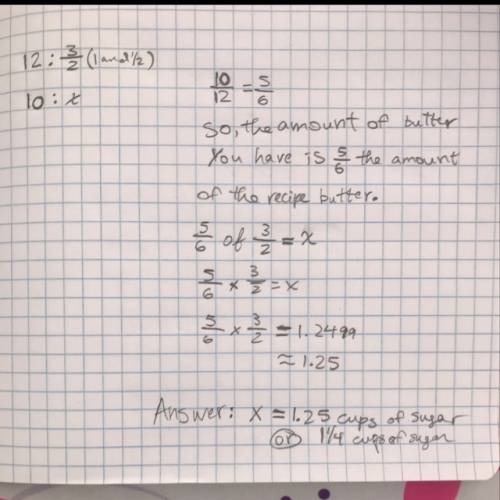 12 : 3/2 (1 and 1/2)
10 : x
10/12 = 5/6
So, the amount of butter
You have is 5/6 the amount
of the recipe butter.
5/6 of 3/2 = x
5/6 x 3/2 = x
5/6 x 3/2 = 1.2499
≈ 1.25
Answer: x = 1.25 cups of sugar
or 1 1/4 cups of sugar